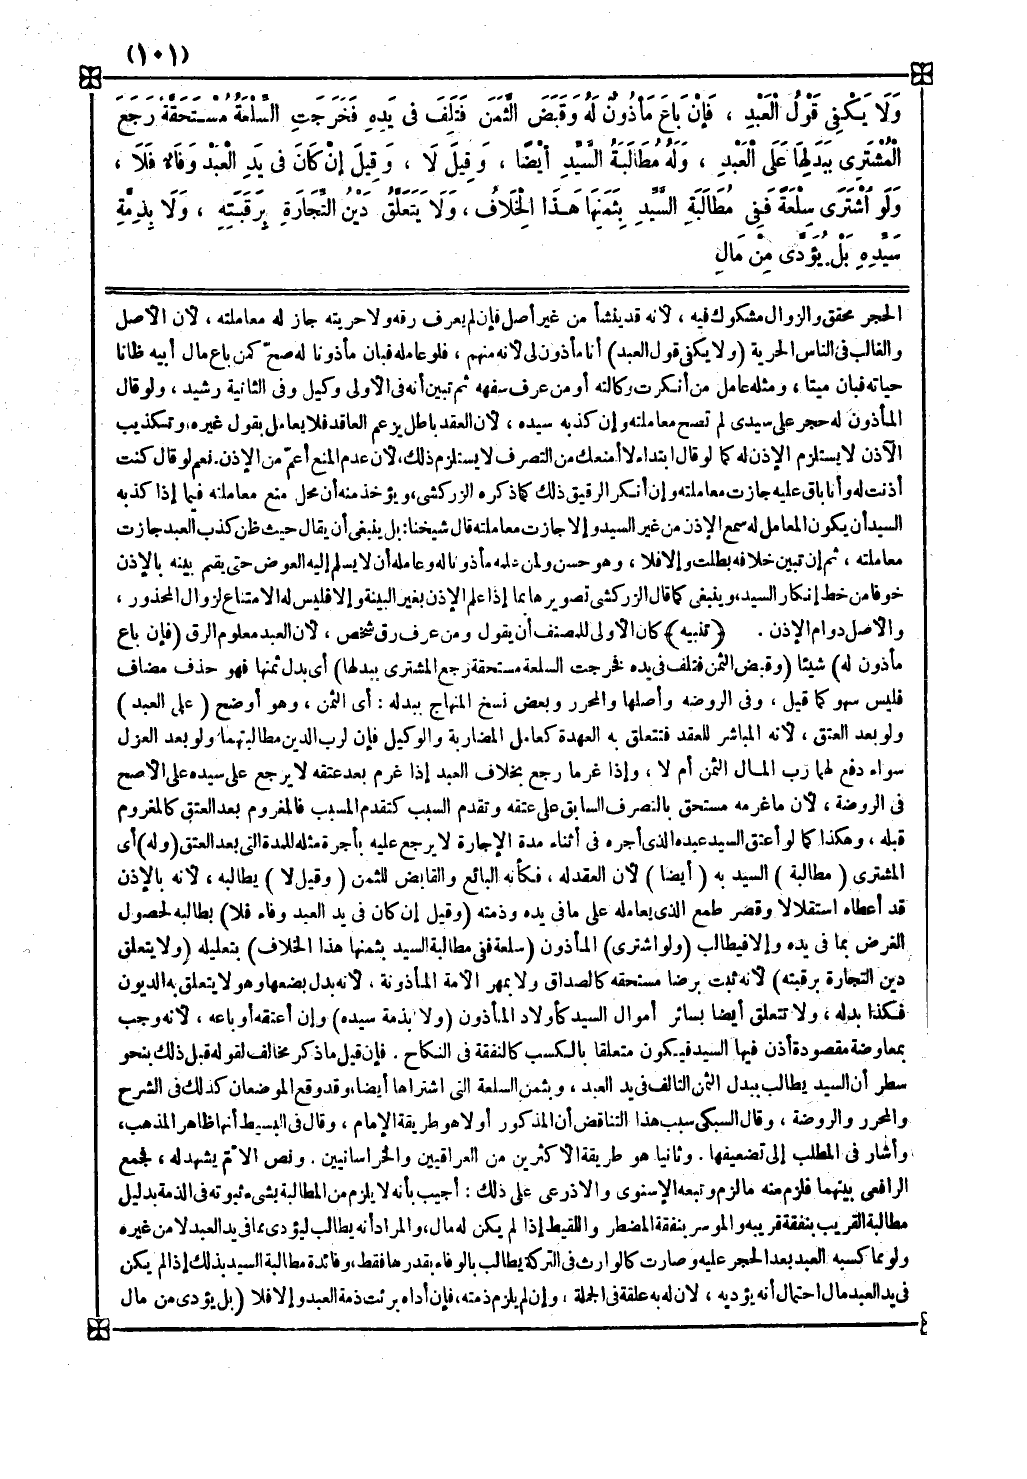 (١٠١)
وَلَا يَكْفِى قَوْلُ الْعَبْدِ ، فَإِنْ بَاعَ مَأْذُونٌ لَهُ وَقَبَضَ الثَّمَنَ فَتَلِفَ فِى يَدِهِ فَخَرَجَتِ السِّلْعَةُ مُسْتَحَقَّةً رَجَعَ
الْمُشْتَرِى بِبَدَلِهَا عَلَى الْعَبْدِ ، وَلَهُ مُطَالَبَةُ السَّيِّدِ أَيْضًا ، وَقِيلَ لَا ، وَقِيلَ إِنْ كَانَ فِى يَدِ الْعَبْدِ وَفَاءٌ فَلَا ،
وَلَوِ اشْتَرَى سِلْعَةً فَفِى مُطَالَبَةِ السَّيِّدِ بِثَمَنِهَا هَـذَا الْخِلَافُ ، وَلَا يَتَعَلَّقُ دَيْنُ التِّجَارَةِ بِرَقَبَتِهِ ، وَلَا بِذِمَّةِ
سَيِّدِهِ بَلْ يُؤَدَّى مِنْ مَالِ
الحجر محقق والزوال مشكوك فيه ، لأنه قد ينشأ من غير أصل فإن لم يعرف رقه ولا حريته جاز له معاملته ، لأن الأصل
والغالب فى الناس الحرية (ولا يكفى قول العبد) أنا مأذون لى لأنه متهم ، فلو عامله فبان مأذونا له صحّ كمن باع مال أبيه ظانا
حياته فبان ميتا ، ومثله عامل من أنكرت وكالته أو من عرف سفهه ثم تبين أنه فى الأولى وكيل وفى الثانية رشيد ، ولو قال
المأذون له حجر علىّ سيدى لم تصح معاملته وإن كذبه سيده ، لأن العقد باطل بزعم العاقد فلا يعامل بقول غيره ، وتكذيب
الآذن لا يستلزم الإذن له كما لو قال ابتداء لا أمنعك من التصرف لا يستلزم ذلك ، لأن عدم المنع أعمّ من الإذن . نعم لو قال كنت
أذنت له وأنا باق عليه جازت معاملته وإن أنكر الرقيق ذلك كما ذكره الزركشى ، ويؤخذ منه أن محل منع معاملته فيما إذا كذبه
السيد أن يكون المعامل له سمع الإذن من غير السيد وإلا جازت معاملته قال شيخنا : بل ينبغى أن يقال حيث ظن كذب العبد جازت
معاملته ، ثم إن تبين خلافه بطلت وإلا فلا ، وهو حسن ولمن علمه مأذونا له وعامله أن لا يسلم إليه العوض حتى يقيم بينه بالإذن
خوفا من خطر إنكار السيد ، وينبغى كما قال الزركشى تصويرها بما إذا علم الإذن بغير البينة وإلا فليس له الامتناع لزوال المحذور ،
والأصل دوام الإذن . (تنبيه) كان الأولى للمصنف أن يقول ومن عرف رق شخص ، لأن العبد معلوم الرق (فإن باع
مأذون له) شيئا (وقبض الثمن فتلف فى يده فخرجت السلعة مستحقة رجع المشترى ببدلها) أى بدل ثمنها فهو حذف مضاف
فليس سهو كما قيل ، وفى الروضه وأصلها والمحرر وبعض نسخ المنهاج ببدله : أى الثمن ، وهو أوضح ( على العبد )
ولو بعد العتق ، لأنه المباشر للعقد فتتعلق به العهدة كعامل المضاربة والوكيل فإن لرب الدين مطالبتهما ولو بعد العزل
سواء دفع لهما رب المـال الثمن أم لا ، وإذا غرما رجع بخلاف العبد إذا غرم بعد عتقه لا يرجع على سيده على الأصح
فى الروضة ، لأن ماغرمه مستحق بالتصرف السابق على عتقه وتقدم السبب كتقدم المسبب فالمغروم بعد العتق كالمغروم
قبله ، وهكذا كما لو أعتق السيد عبده الذى أجره فى أثناء مدة الإجارة لا يرجع عليه بأجرة مثله للمدة التى بعد العتق (وله) أى
المشترى ( مطالبة ) السيد به ( أيضا ) لأن العقد له ، فكأنه البائع والقابض للثمن ( وقيل لا ) يطالبه ، لأنه بالإذن
قد أعطاه استقلالا وقصر طمع الذى يعامله على ما فى يده وذمته (وقيل إن كان فى يد العبد وفاء فلا) يطالبه لحصول
الغرض بما فى يده وإلا فيطالب (ولو اشترى) المأذون (سلعة ففى مطالبة السيد بثمنها هذا الخلاف) بتعليله (ولا يتعلق
دين التجارة برقبته) لأنه ثبت برضا مستحقه كالصداق ولا بمهر الأمة المأذونة ، لأنه بدل بضعها وهو لا يتعلق به الديون
فكذا بدله ، ولا تتعلق أيضا بسائر أموال السيد كأولاد المأذون (ولا بذمة سيده) وإن أعتقه أو باعه ، لأنه وجب
بمعاوضة مقصودة أذن فيها السيد فيكون متعلقا بالكسب كالنفقة فى النكاح . فإن قيل ما ذكر مخالف لقوله قبل ذلك بنحو
سطر أن السيد يطالب ببدل الثمن التالف فى يد العبد ، وبثمن السلعة التى اشتراها أيضا ، وقد وقع الموضعان كذلك فى الشرح
والمحرر والروضة ، وقال السبكى سبب هذا التناقض أن المذكور أولا هو طريقة الإمام ، وقال فى البسيط أنها ظاهر المذهب ،
وأشار فى المطلب إلى تضعيفها . وثانيا هو طريقة الأكثرين من العراقيين والخراسانيين . ونص الأم يشهد له ، فجمع
الرافعى بينهما فلزم منه مالزم وتبعه الإسنوى والأذرعى على ذلك : أجيب بأنه لا يلزم من المطالبة بشىء ثبوته فى الذمة بدليل
مطالبة القريب بنفقة قريبه والموسر بنفقة المضطر واللقيط إذا لم يكن له مال ، والمراد أنه يطالب ليؤدى مما فى يد العبد لا من غيره
ولو مما كسبه العبد بعد الحجر عليه وصارت كالوارث فى التركة يطالب بالوفاء بقدرها فقط ، وفائدة مطالبة السيد بذلك إذا لم يكن
فى يد العبد مال احتمال أنه يؤديه ، لأن له به علقة فى الجملة ، وإن لم يلزم ذمته ، فإن أداه برئت ذمة العبد وإلا فلا (بل يؤدى من مال